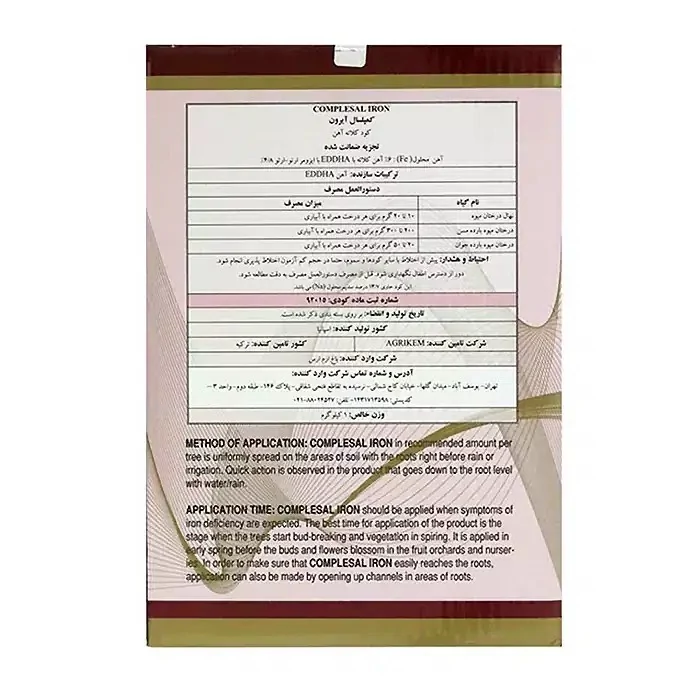 COMPLESAL IRON
کمپلسال آیرون
کود کلاته آهن
تجزیه ضمانت شده
آهن محلول( Fe) : ۶٪ آهن کلاته با EDDHA با ایزومر ارتو-ارتو ۴/۸٪
ترکیبات سازنده: آهن EDDHA
دستورالعمل مصرف
نام گیاه میزان مصرف
نهال درختان میوه ۱۰ تا ۲۰ گرم برای هر درخت همراه با آبیاری
درختان میوه بارده مسن ۲۰۰ تا ۳۰۰ گرم برای هر درخت همراه با آبیاری
درختان میوه بارده جوان ۲۰ تا ۵۰ گرم برای هر درخت همراه با آبیاری
احتیاط و هشدار: پیش از اختلاط با سایر کودها و سموم، حتما در حجم کم آزمون اختلاط پذیری انجام شود.
دور از دسترس اطفال نگهداری شود. قبل از مصرف دستورالعمل مصرف به دقت مطالعه شود.
این کود حاوی ۱۳/۸ درصد سدیم محلول (Na) می باشد.
شماره ثبت ماده کودی: ۹۲۰۱۵
تاریخ تولید و انقضاء: بر روی بسته بندی ذکر شده است
کشور تولید کننده: اسپانیا
شرکت تامین کننده: AGRIKEM کشور تامین کننده: ترکیه
شرکت وارد کننده: باغ ارم ارس
آدرس و شماره تماس شرکت وارد کننده:
تهران- یوسف آباد- میدان گلها- خیابان کاج شمالی- نرسیده به تقاطع فتحی شقاقی- پلاک ۱۴۶- طبقه دوم- واحد ۳ –
کدپستی: ۱۴۳۱۷۱۳۵۹۸- تلفن: ۸۸۰۲۴۵۳۷-۰۲۱
وزن خالص: ۱ کیلوگرم
METHOD OF APPLICATION: COMPLESAL IRON in recommended amount per
tree is uniformly spread on the areas of soil with the roots right before rain or
irrigation. Quick action is observed in the product that goes down to the root level
with water/rain.
APPLICATION TIME: COMPLESAL IRON should be applied when symptoms of
iron deficiency are expected. The best time for application of the product is the
stage when the trees start bud-breaking and vegetation in spiring. It is applied in
early spring before the buds and flowers blossom in the fruit orchards and nurser-
ies. In order to make sure that COMPLESAL IRON easily reaches the roots,
application can also be made by opening up channels in areas of roots.